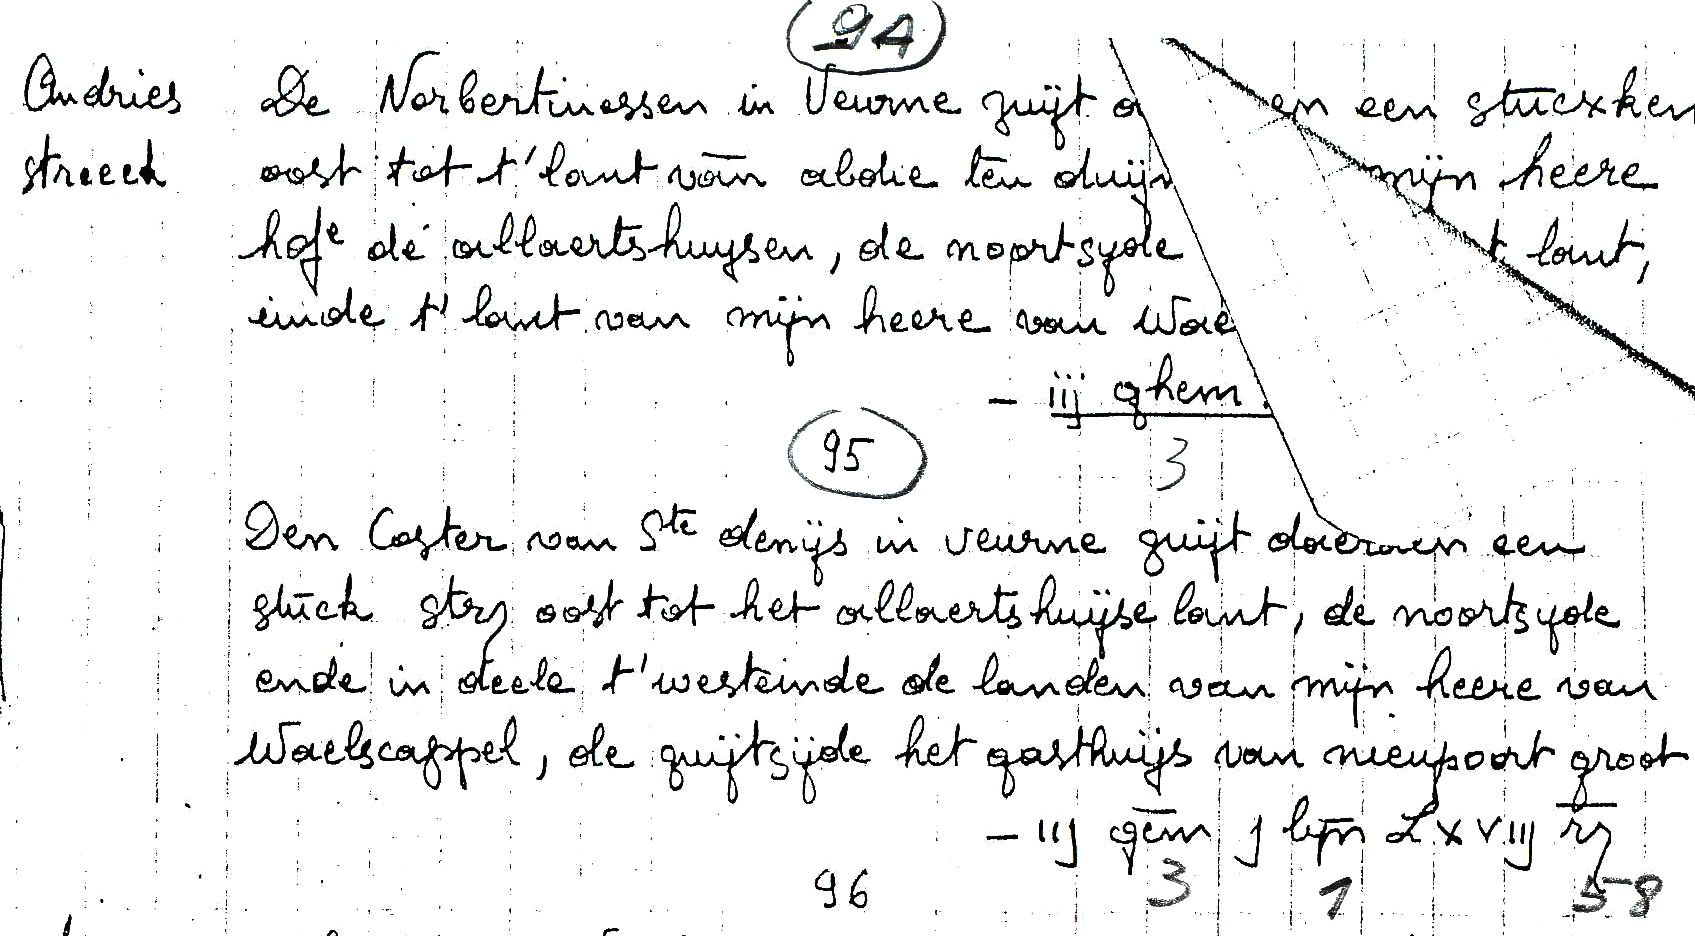 94
Andries
streeck
De Norbertinessen in Veurne zuijt en een stucxken
oost tot t'lant van abdie ten duijn mijn heere
hofe de allaertshuysen, de noortsyde t lant,
einde t' lant van mijn heere van Wae
- iij ghem.
3
95
Den Coster van Ste denijs in veurne zuijt daeraen een
stuck strz oost tot het allaertshuijse lant, de noortsyde
ende in deele t'westeinde de landen van mijn heere van
Waelscappel, de zuijtzijde het gasthuijs van nieupoort groot
- iij gem j lijn LxViij rz
3 1 58
96